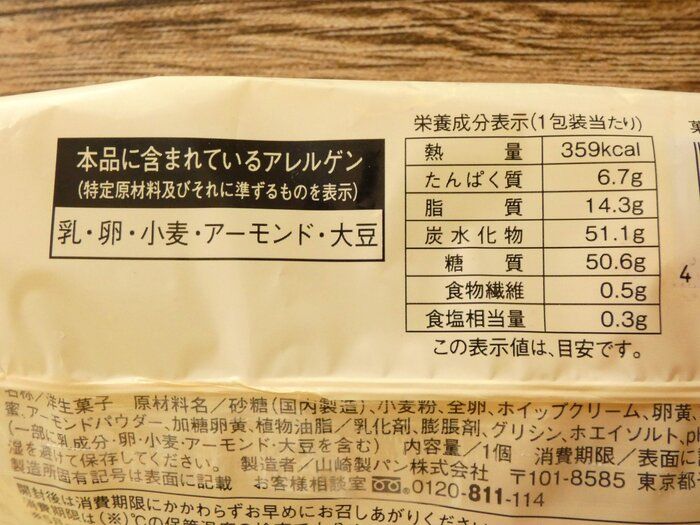 本品に含まれているアレルゲン
(特定原材料及びそれに準ずるものを表示)
乳・卵・小麦・アーモンド・大豆
栄養成分表示(1包装当たり)
熱量 359kcal
たんぱく質 6.7g
脂質 14.3g
炭水化物 51.1g
糖質 50.6g
食物繊維 0.5g
食塩相当量 0.3g
この表示値は、目安です。
4
名称/洋生菓子 原材料名/砂糖(国内製造)、小麦粉、全卵、ホイップクリーム、卵黄、
蜜、アーモンドパウダー、加糖卵黄、植物油脂/乳化剤、膨脹剤、グリシン、ホエイソルト、pH
(一部に乳成分・卵・小麦・アーモンド・大豆を含む) 内容量/1個 消費期限/表面に
湿を避けて保存してください。 製造者/山崎製パン株式会社 〒101-8585 東京都
製造所固有記号は表面に記載 お客様相談室 0120-811-114
開封後は消費期限にかかわらずお早めにお召しあがりください。